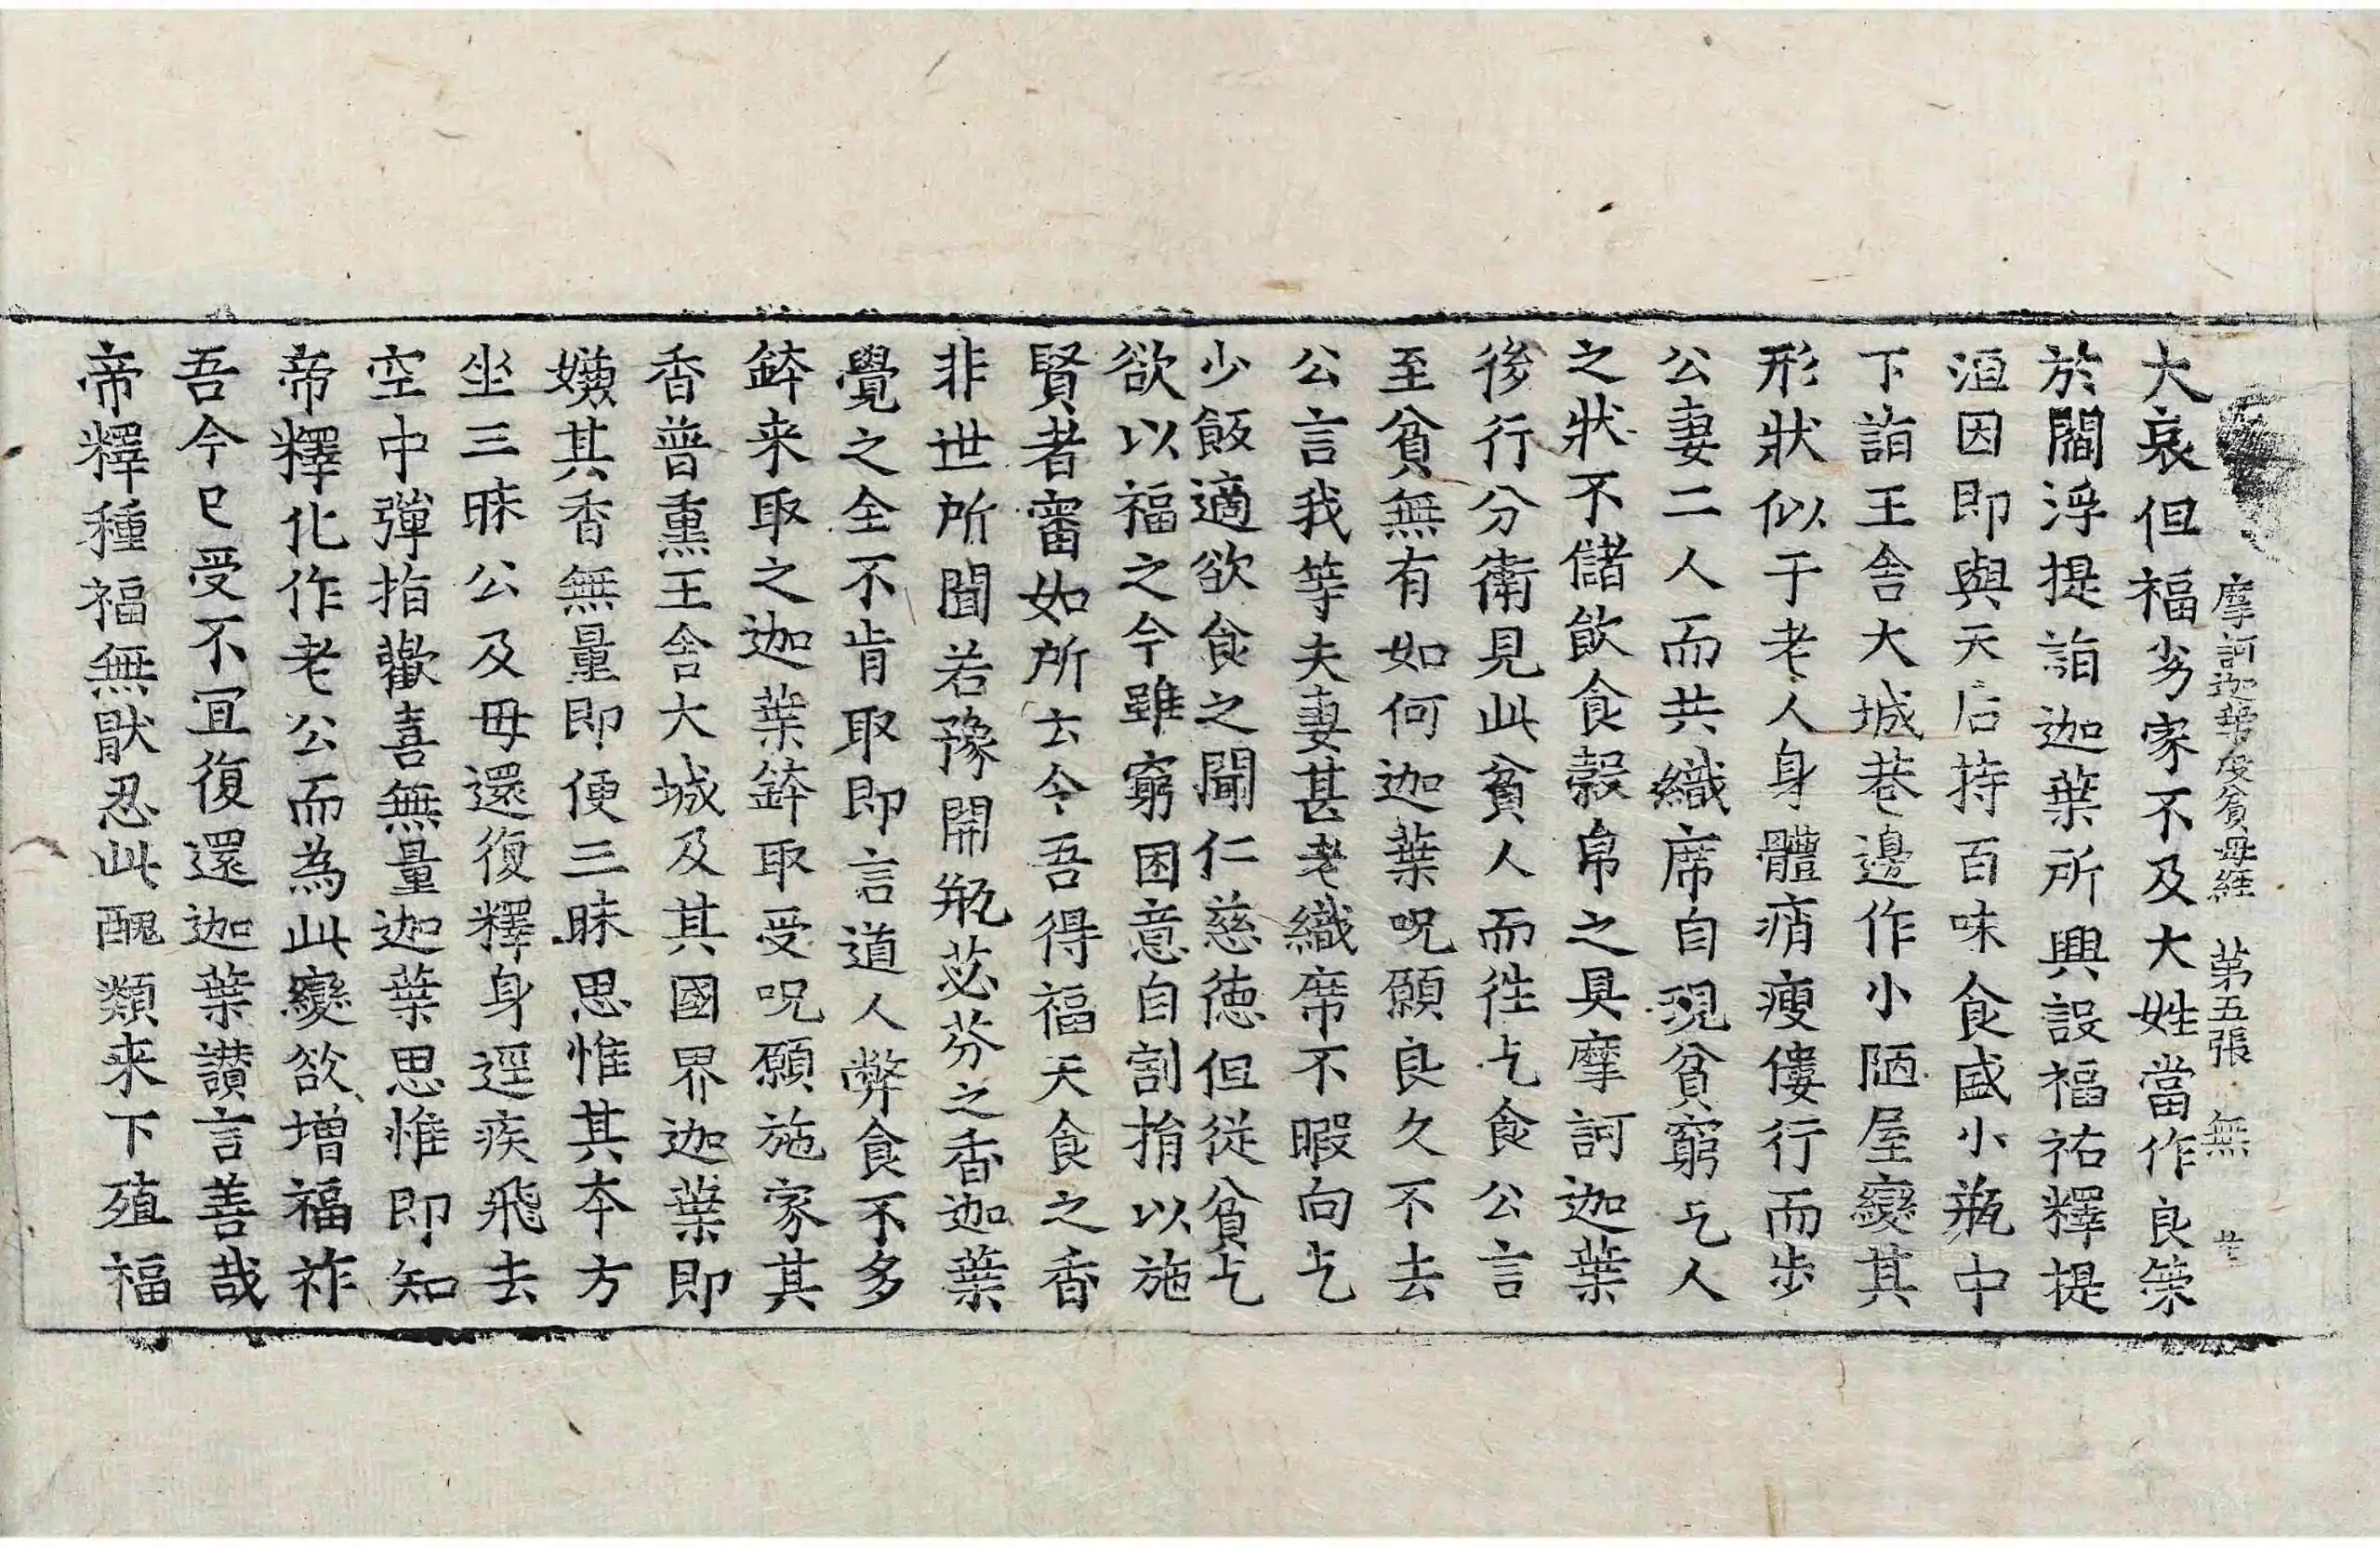 摩訶迦葉度貧母経 第五張 無
大哀但福劣家不及大姓當作良策
於閻浮提詣迦葉所興設福祐釋提
洹因即與天后持百味食盛小瓶中
下詣王舎大城巷邊作小陋屋變其
形狀似于老人身體痟瘦僂行而步
公妻二人而共織席自現貧窮乞人
之狀不儲飲食穀帛之具摩訶迦葉
後行分衛見此貧人而徃乞食公言
至貧無有如何迦葉呪願良久不去
公言我等夫妻甚老織席不暇向乞
少飯適欲食之聞仁慈徳但従貧乞
欲以福之今雖窮困意自割捐以施
賢者審如所云今吾得福天食之香
非世所聞若豫開瓶苾芬之香迦葉
覺之全不肯取即言道人弊食不多
鉢来取之迦葉鉢取受呪願施家其
香普熏王舎大城及其國界迦葉即
嫌其香無量即便三昧思惟其夲方
坐三昧公及母還復釋身逕疾飛去
空中彈指歡喜無量迦葉思惟即知
帝釋化作老公而為此變欲増福祚
吾今已受不冝復還迦葉讃言善哉
帝釋種福無猒忍此醜類来下殖福